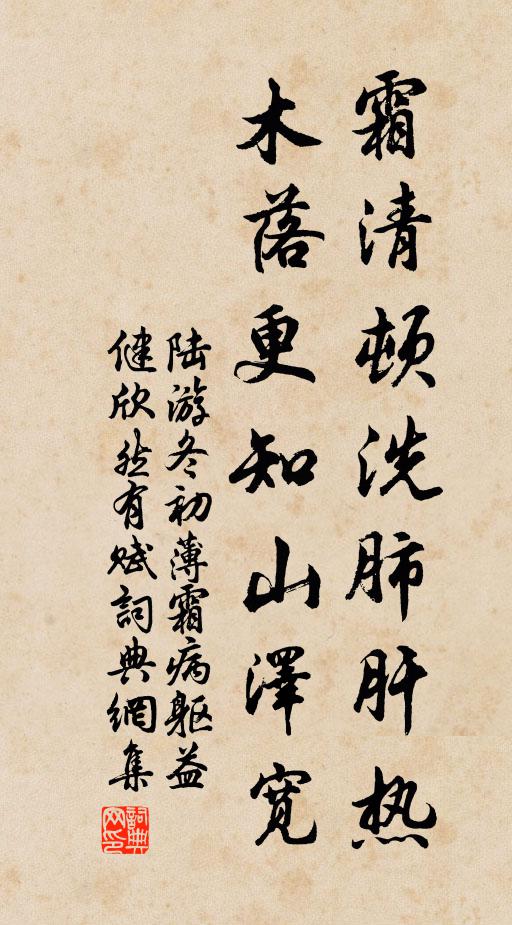 霜清顿洗肺肝热
木落更知山澤寛
陆游冬初薄霜病躯益
健欣然有赋詞典網集
詞典网印